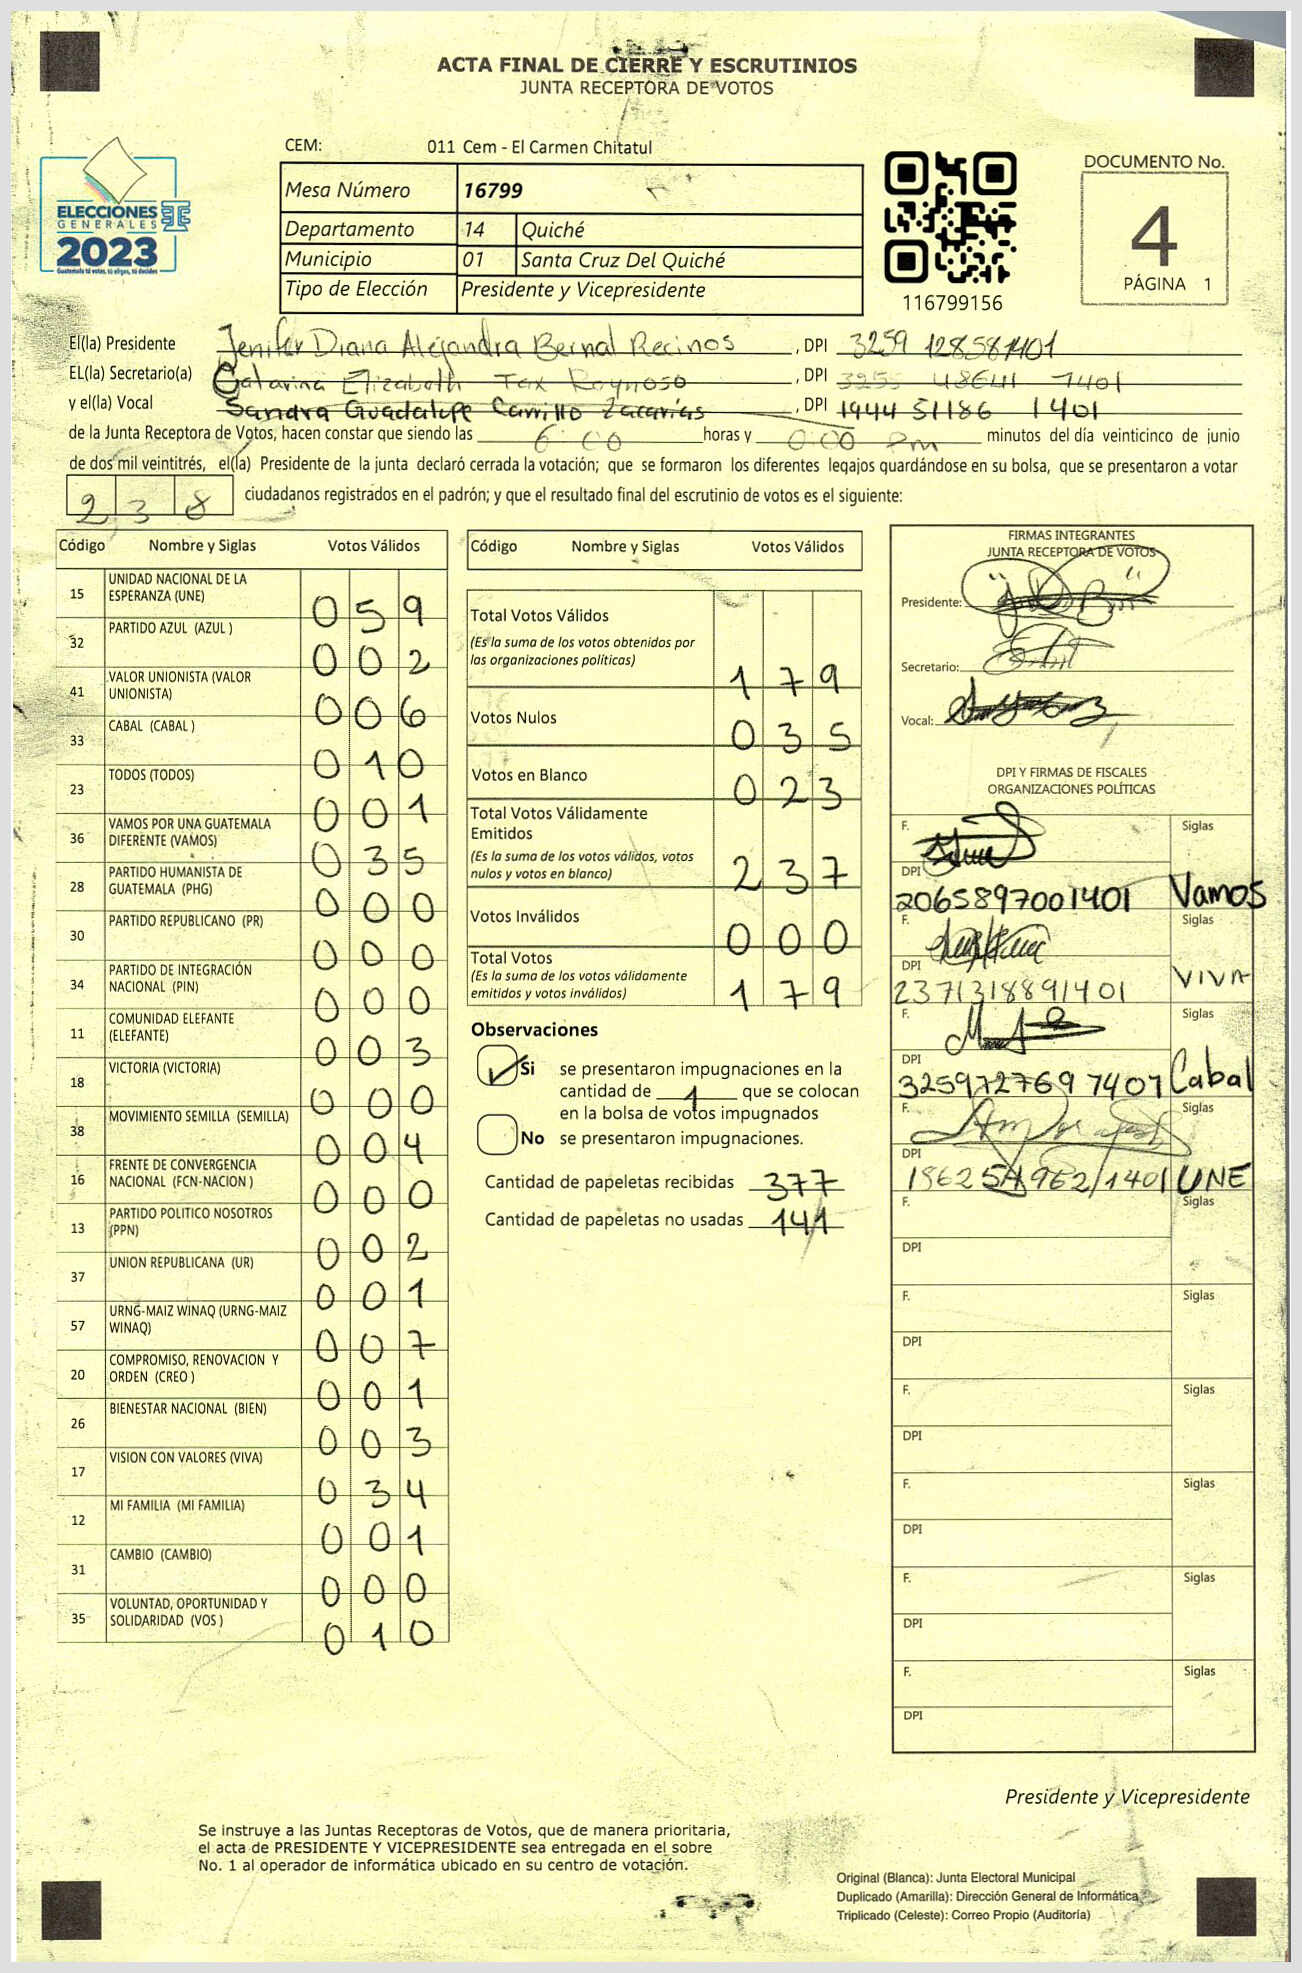 ACTA FINAL DE CIERRE Y ESCRUTINIOS
JUNTA RECEPTORA DE VOTOS
CEM: 011 Cem - El Carmen Chitatul
ELECCIONES
GENERALES
2023
Guatemala tú votas, tú eliges, tú decides
Mesa Número 16799
Departamento 14 Quiché
Municipio 01 Santa Cruz Del Quiché
Tipo de Elección Presidente y Vicepresidente
116799156
DOCUMENTO No.
4
PÁGINA 1
El(la) Presidente Jenifer Diana Alejandra Bernal Recinos, DPI 3259 12858 1401
EL(la) Secretario(a) Catarina Elizabeth Tax Reynoso, DPI 3255 48641 1401
y el(la) Vocal Sandra Guadalupe Carrillo Zacarias, DPI 1944 51186 1401
de la Junta Receptora de Votos, hacen constar que siendo las 6:00 horas y 0:00 pm minutos del día veinticinco de junio
de dos mil veintitrés, el(la) Presidente de la junta declaró cerrada la votación; que se formaron los diferentes legajos guardándose en su bolsa, que se presentaron a votar
238 ciudadanos registrados en el padrón; y que el resultado final del escrutinio de votos es el siguiente:
Código Nombre y Siglas Votos Válidos
15 UNIDAD NACIONAL DE LA ESPERANZA (UNE) 059
32 PARTIDO AZUL (AZUL ) 002
41 VALOR UNIONISTA (VALOR UNIONISTA) 006
33 CABAL (CABAL ) 010
23 TODOS (TODOS) 001
36 VAMOS POR UNA GUATEMALA DIFERENTE (VAMOS) 035
28 PARTIDO HUMANISTA DE GUATEMALA (PHG) 000
30 PARTIDO REPUBLICANO (PR) 000
34 PARTIDO DE INTEGRACIÓN NACIONAL (PIN) 000
11 COMUNIDAD ELEFANTE (ELEFANTE) 003
18 VICTORIA (VICTORIA) 000
38 MOVIMIENTO SEMILLA (SEMILLA) 004
16 FRENTE DE CONVERGENCIA NACIONAL (FCN-NACION ) 000
13 PARTIDO POLITICO NOSOTROS (PPN) 002
37 UNION REPUBLICANA (UR) 001
57 URNG-MAIZ WINAQ (URNG-MAIZ WINAQ) 007
20 COMPROMISO, RENOVACION Y ORDEN (CREO ) 001
26 BIENESTAR NACIONAL (BIEN) 003
17 VISION CON VALORES (VIVA) 034
12 MI FAMILIA (MI FAMILIA) 001
31 CAMBIO (CAMBIO) 000
35 VOLUNTAD, OPORTUNIDAD Y SOLIDARIDAD (VOS ) 010
Código Nombre y Siglas Votos Válidos
Total Votos Válidos
(Es la suma de los votos obtenidos por
las organizaciones políticas) 179
Votos Nulos 035
Votos en Blanco 023
Total Votos Válidamente
Emitidos
(Es la suma de los votos válidos, votos
nulos y votos en blanco) 237
Votos Inválidos 000
Total Votos
(Es la suma de los votos válidamente
emitidos y votos inválidos) 179
Observaciones
Si se presentaron impugnaciones en la
cantidad de 1 que se colocan
en la bolsa de votos impugnados
No se presentaron impugnaciones.
Cantidad de papeletas recibidas 377
Cantidad de papeletas no usadas 141
FIRMAS INTEGRANTES
JUNTA RECEPTORA DE VOTOS
Presidente:
Secretario:
Vocal:
DPI Y FIRMAS DE FISCALES
ORGANIZACIONES POLÍTICAS
F. Siglas
DPI
2065897001401 Vamos
F. Siglas
DPI
2371318891401 VIVA
F. Siglas
DPI
3259727697401 Cabal
F. Siglas
DPI
UNE
F. Siglas
DPI
F. Siglas
DPI
F. Siglas
DPI
F. Siglas
DPI
F. Siglas
DPI
F. Siglas
DPI
Presidente y Vicepresidente
Se instruye a las Juntas Receptoras de Votos, que de manera prioritaria,
el acta de PRESIDENTE Y VICEPRESIDENTE sea entregada en el sobre
No. 1 al operador de informática ubicado en su centro de votación.
Original (Blanca): Junta Electoral Municipal
Duplicado (Amarilla): Dirección General de Informática
Triplicado (Celeste): Correo Propio (Auditoría)